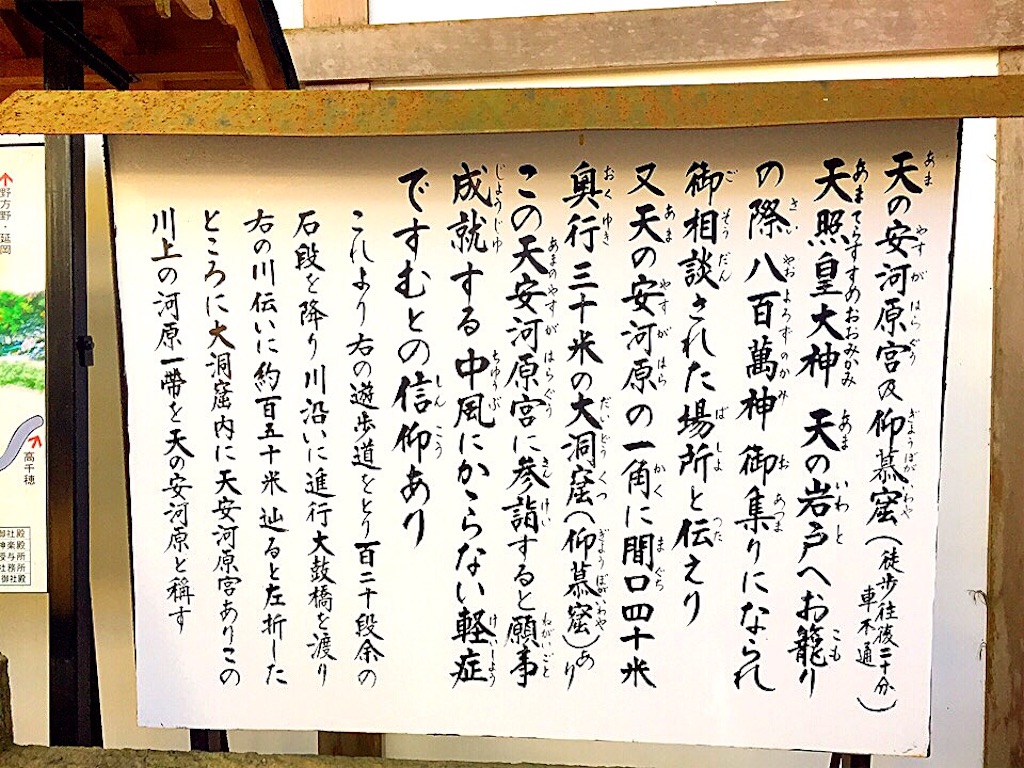 天の安河原宮及仰慕窟(徒歩往復二十分 車不通)
天照皇大神 天の岩戸へお籠り
の際八百萬神御集りになられ
御相談された場所と伝えり
又天の安河原の一角に間口四十米
奥行三十米の大洞窟(仰慕窟)あり
この天安河原宮に参詣すると願事
成就する中風にかからない軽症
ですむとの信仰あり
これより右の遊歩道をとり百二十段余の
石段を降り川沿いに進行大鼓橋を渡り
右の川伝いに約百五十米辿ると左折した
ところに大洞窟内に天安河原宮ありこの
川上の河原一帶を天の安河原と稱す
野方野・延岡
高千穂
御社殿
神楽殿
授与所
社務所
御社殿